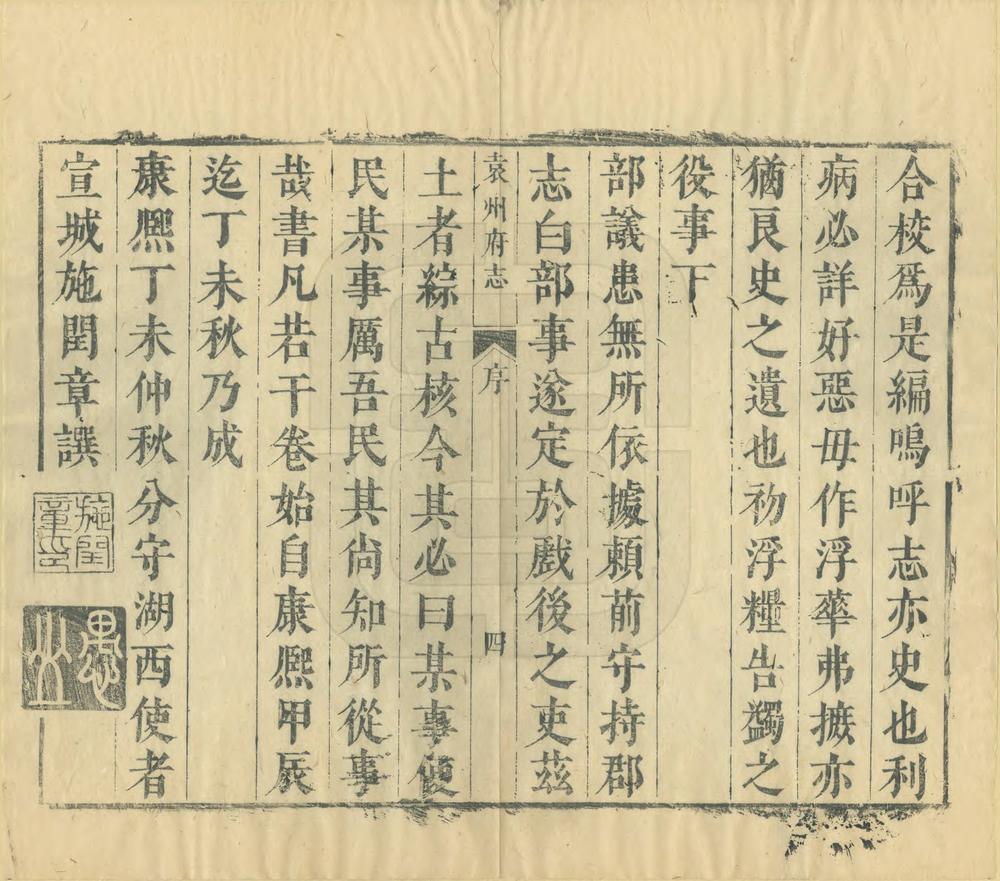 合校爲是編嗚呼志亦史也利
病必詳好惡毋作浮華弗摭亦
猶良史之遺也初浮糧告蠲之
役事下
部議患無所依據賴前守持郡
志白部事遂定於戲後之吏茲
袁州府志 序 四
土者綜古核今其必曰某事便
民某事厲吾民其尙知所從事
哉書凡若干卷始自康熙甲辰
迄丁未秋乃成
康熙丁未仲秋分守湖西使者
宣城施閏章譔
施閏章印
愚山